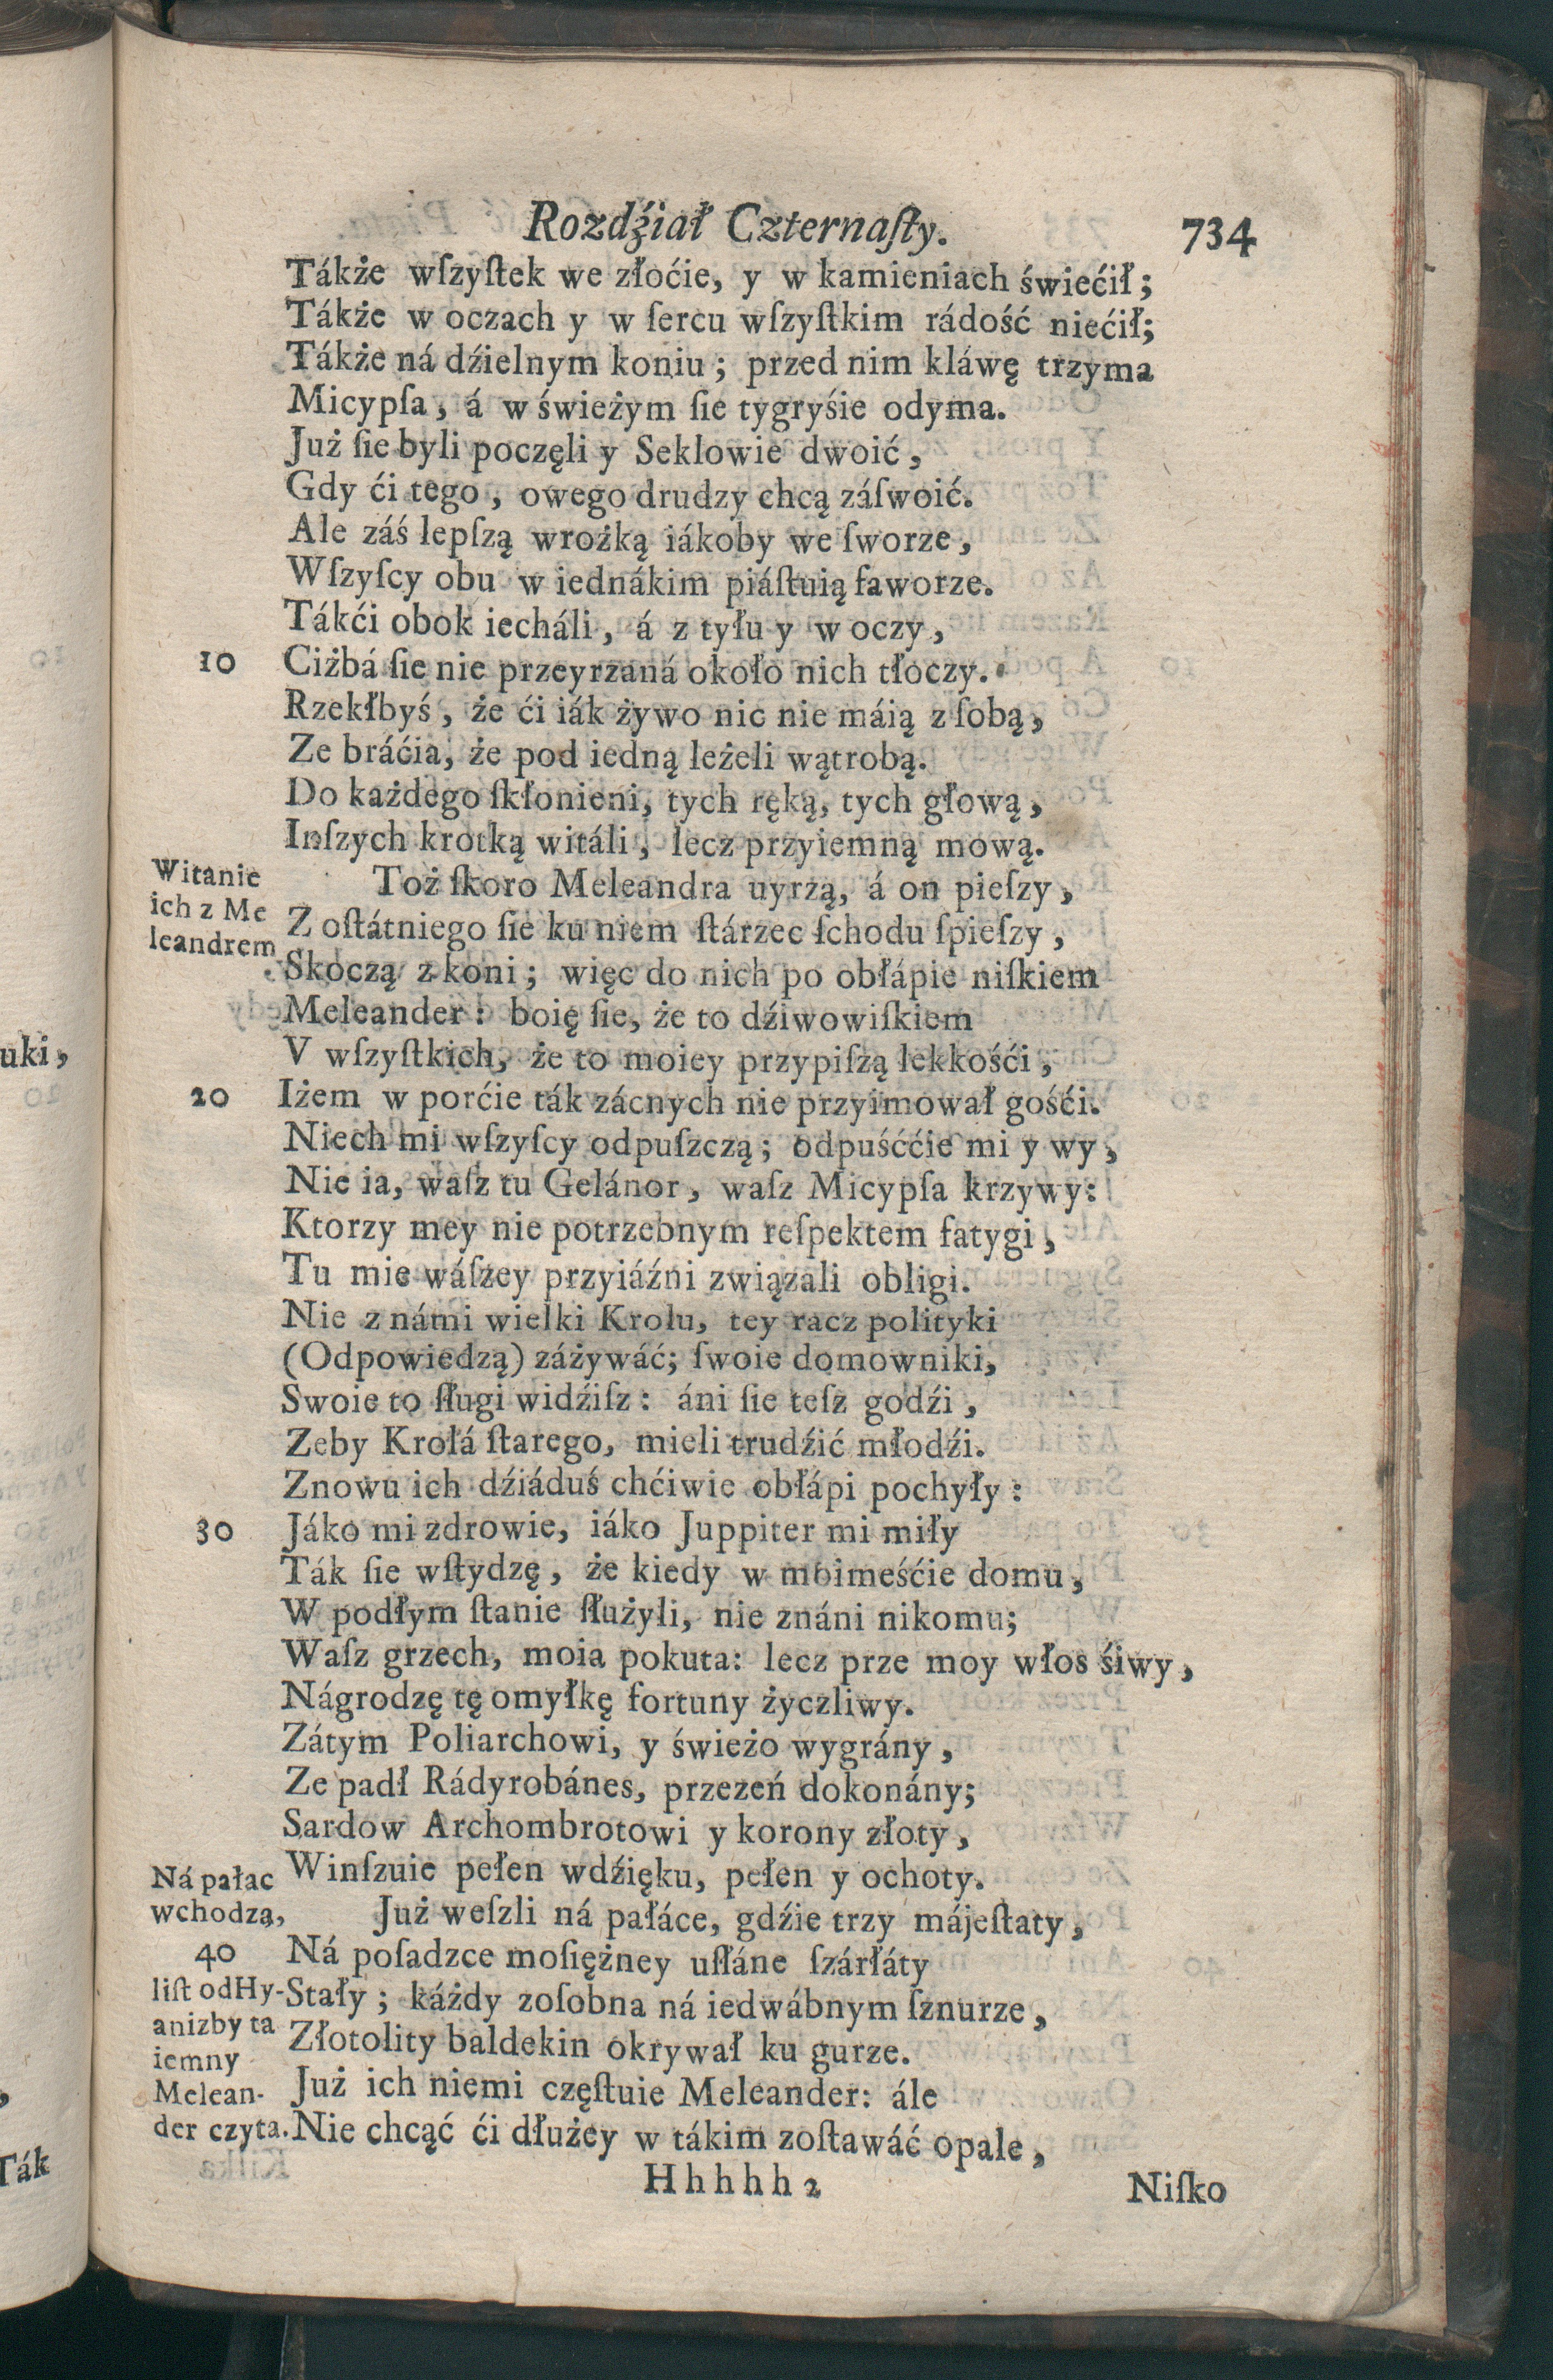 Rozdźiał Czternaſty. 734
Tákże wſzyſtek we złoćie, y w kamieniach świećił;
Tákże w oczach y w ſercu wſzyſtkim rádość niećił;
Tákże ná dźielnym koniu; przed nim kláwę trzyma
Micypſa, á w świeżym ſie tygryśie odyma.
Już ſie byli poczęli y Seklowie dwoić,
Gdy ći tego, owego drudzy chcą záſwoić.
Ale záś lepſzą wrożką iákoby we ſworze,
Wſzyſcy obu w iednákim piáſtuią faworze.
Tákći obok iecháli, á z tyłu y w oczy,
10 Ciżbá ſie nie przeyrzaná około nich tłoczy.
Rzekłbyś, że ći iák żywo nic nie máią z ſobą,
Ze bráćia, że pod iedną leżeli wątrobą.
Do każdego ſkłonieni, tych ręką, tych głową,
Inſzych krotką witáli, lecz przyiemną mową.
Witanie
ich z Me
leandrem
Toż ſkoro Meleandra uyrzą, á on pieſzy,
Z oſtátniego ſie ku niem ſtárzec ſchodu ſpieſzy,
Skoczą z koni; więc do nich po obłápie niſkiem
Meleander: boię ſie, że to dźiwowiſkiem
V wſzyſtkich, że to moiey przypiſzą lekkośći,
20 Iżem w porćie ták zácnych nie przyimował gośći.
Niech mi wſzyſcy odpuſzczą; odpuśććie mi y wy,
Nie ia, waſz tu Gelánor, waſz Micypſa krzywy:
Ktorzy mey nie potrzebnym reſpektem fatygi,
Tu mie wáſzey przyiáźni związali obligi.
Nie z námi wielki Krolu, tey racz polityki
(Odpowiedzą) záżywáć; ſwoie domowniki,
Swoie to ſługi widźiſz: áni ſie teſz godźi,
Zeby Krolá ſtarego, mieli trudźić młodźi.
Znowu ich dźiáduś chćiwie obłápi pochyły:
30 Jáko mi zdrowie, iáko Juppiter mi miły
Ták ſie wſtydzę, że kiedy w moimeśćie domu,
W podłym ſtanie ſłużyli, nie znáni nikomu;
Waſz grzech, moia pokuta: lecz prze moy włos śiwy,
Nágrodzę tę omyłkę fortuny życzliwy.
Zátym Poliarchowi, y świeżo wygrány,
Ze padł Rádyrobánes, przezeń dokonány;
Sardow Archombrotowi y korony złoty,
Winſzuie pełen wdźięku, pełen y ochoty.
Ná pałac
wchodzą,
Już weſzli ná pałáce, gdźie trzy májeſtaty,
40 Ná poſadzce moſiężney uſłáne ſzárłáty
liſt od Hy-
anizby ta
iemny
Melean-
der czyta.
Stały; káżdy zoſobna ná iedwábnym ſznurze,
Złotolity baldekin okrywał ku gurze.
Już ich niemi częſtuie Meleander: ále
Nie chcąć ći dłużey w tákim zoſtawáć opale,
Hhhhh2 Niſko
uki,
Ták